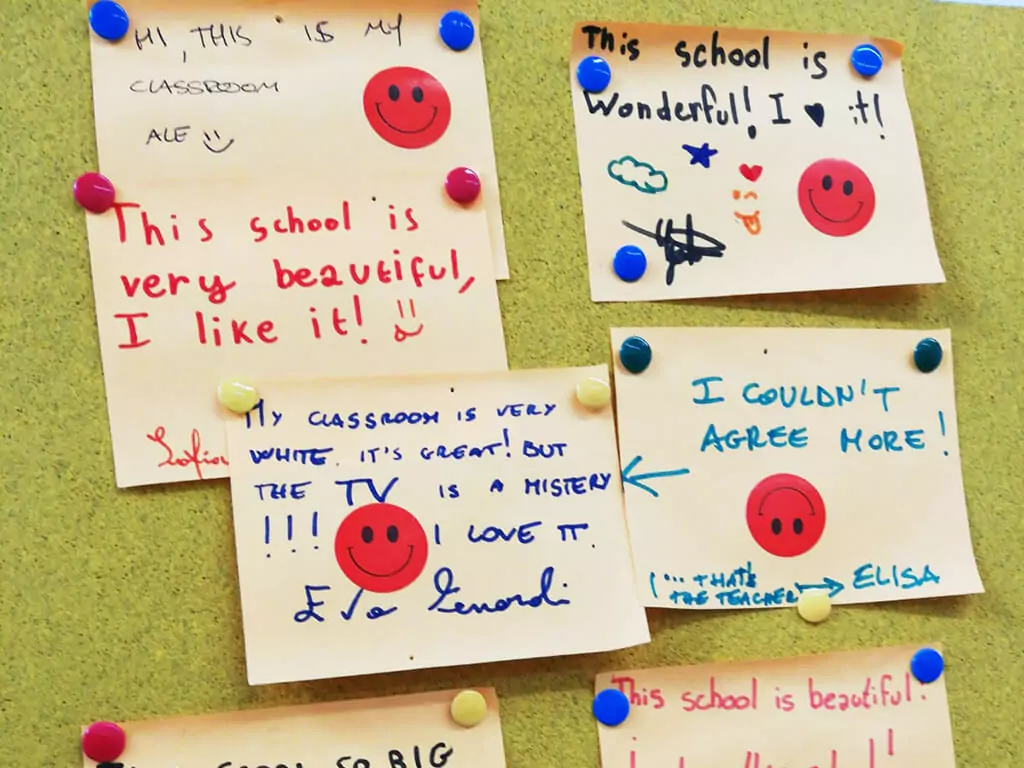 HI, THIS IS MY
CLASSROOM
ALE
This school is
very beautiful,
I like it!
Sofia
This school is
Wonderful! I ♥ it!
MY CLASSROOM IS VERY
WHITE. IT'S GREAT! BUT
THE TV IS A MISTERY
!!! I LOVE IT.
Eva
I COULDN'T
AGREE MORE!
(... THAT'S
THE TEACHER → ELISA
SO BIG
This school is beautiful!